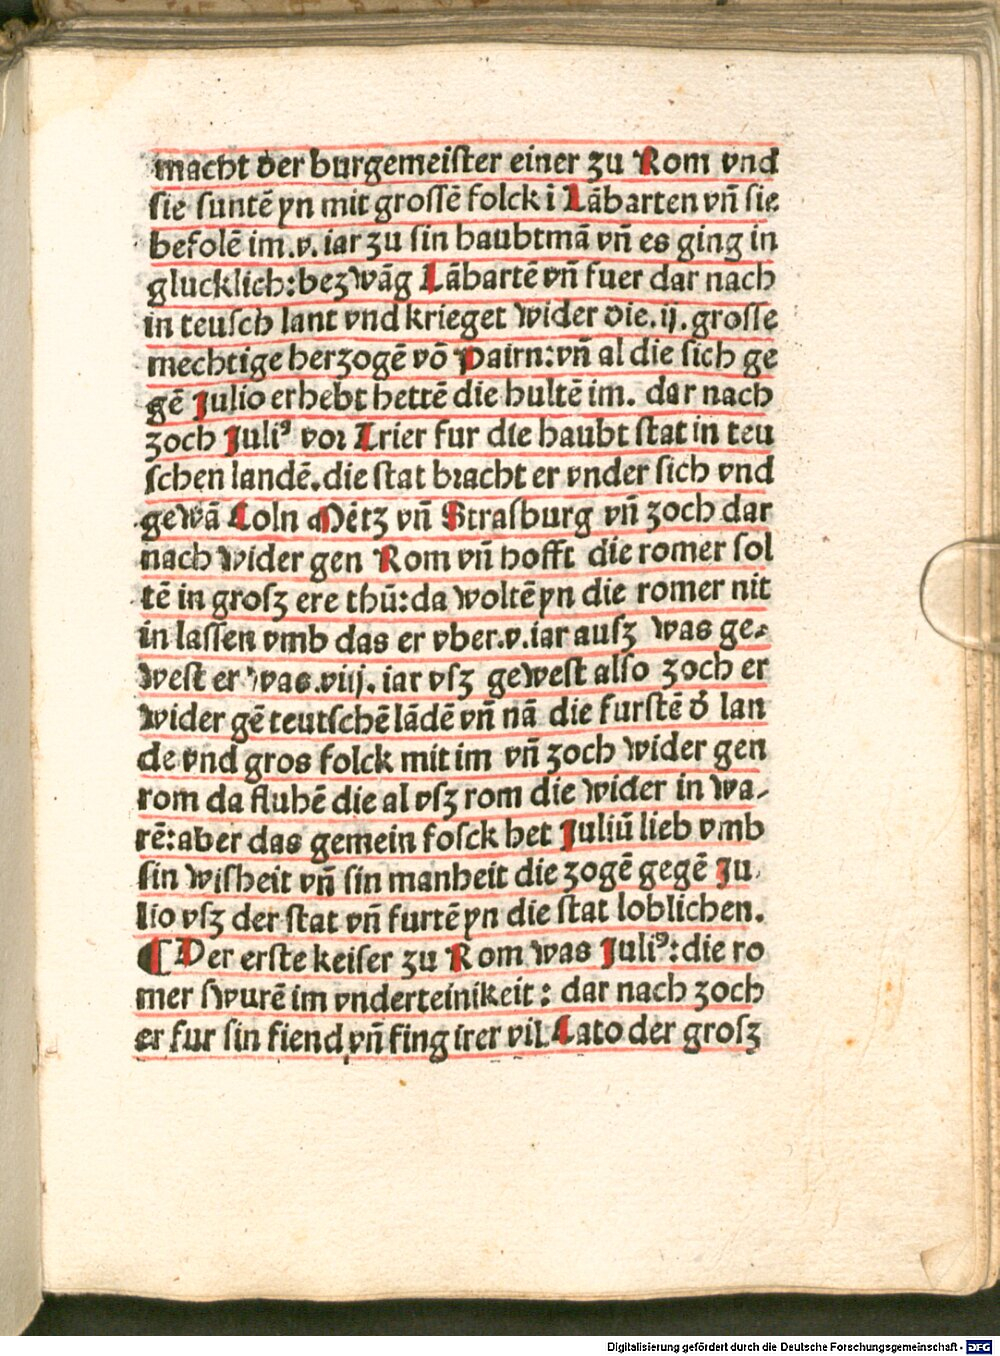 macht der burgemeiſter einer zu Rom vnd
ſie ſuntē yn mit groſſē folck ī Lābarten vn̄ ſie
befolē im .v. iar zu ſin haubtmā vn̄ es ging in
glucklich: bezwāg Lābartē vn̄ fuer dar nach
in teuſch lant vnd krieget wider die .ij. groſſe
mechtige herzogē vō Pairn: vn̄ al die ſich ge
gē Julio erhebt hettē die hultē im. dar nach
zoch Juliꝰ vor Trier fur die haubt ſtat in teu
ſchen landē. die ſtat bracht er vnder ſich vnd
gewā Coln Mētz vn̄ Straſburg vn̄ zoch dar
nach wider gen Rom vn̄ hofft die romer ſol
tē in groſz ere thū: da woltē yn die romer nit
in laſſen vmb das er vber .v. iar auſz was ge⸗
weſt er was .viij. iar vſz geweſt alſo zoch er
wider gē teutſchē lādē vn̄ nā die furſtē d̕ lan
de vnd gros folck mit im vn̄ zoch wider gen
rom da fluhē die al vſz rom die wider in wa⸗
rē: aber das gemein foſck het Juliū lieb vmb
ſin wiſheit vn̄ ſin manheit die zogē gegē Ju⸗
lio vſz der ſtat vn̄ furtē yn die ſtat loblichen.
¶ Der erſte keiſer zu Rom was Juliꝰ: die ro
mer ſwurē im vnderteinikeit: dar nach zoch
er fur ſin fiend vn̄ fing irer vil. Cato der groſz
Digitalisierung gefördert durch die Deutsche Forschungsgemeinschaft - DFG